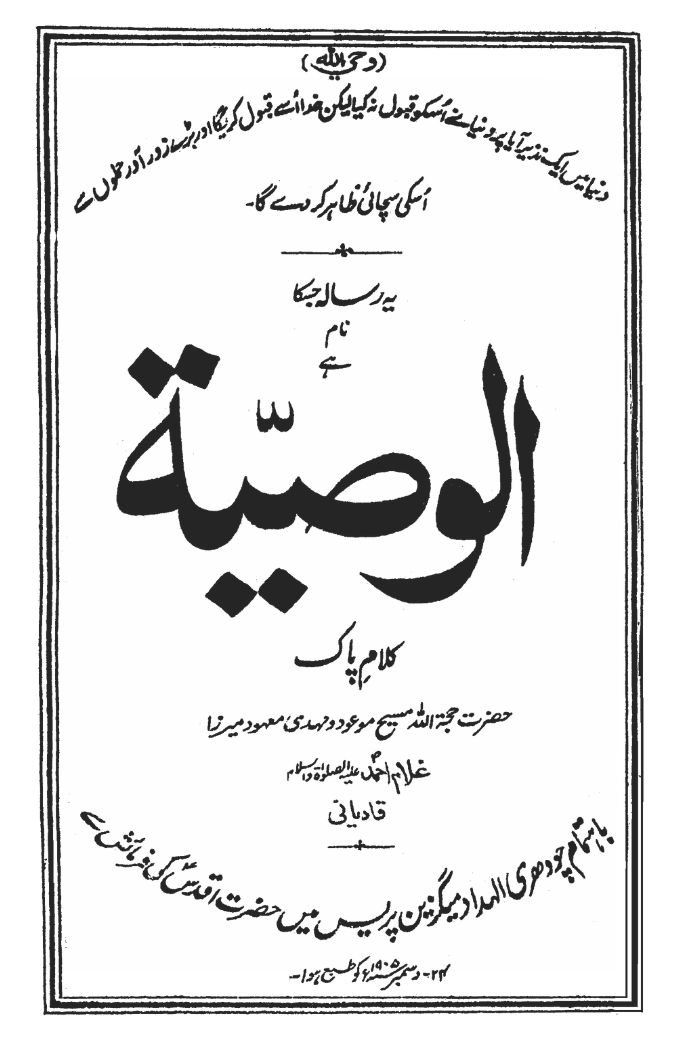 (وحی اللہ)
دنیا میں ایک نذیر آیا پر دنیا نے اُسکو قبول نہ کیا لیکن خدا اُسے قبول کریگا اور بڑے زور آور حملوں سے
اُسکی سچائی ظاہر کر دے گا۔
یہ رسالہ جسکا
نام
ہے
الوصیّة
کلامِ پاک
حضرت حجۃ اللہ مسیح موعود و مہدی معہود میرزا
غلام احمد علیہ الصلوٰۃ والسلام
قادیانی
باہتمام چودھری الہداد میگزین پریس میں حضرت اقدسؑ کی فرمائش سے
۲۴- دسمبر ۱۹۰۵ء کو طبع ہوا۔